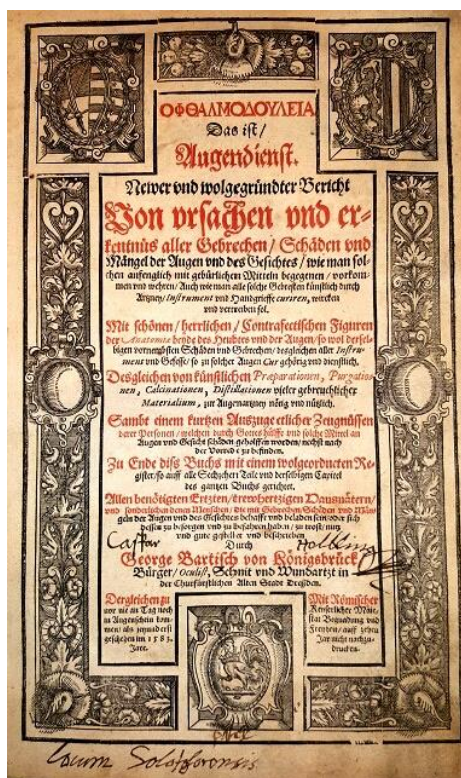 ΟΦΘΑΛΜΟΔΟΥΛΕΙΑ
Das ist/
Augendienst.
Newer vnd wolgegründter Bericht
Von vrsachen vnd er-
kentnüs aller Gebrechen/ Schäden vnd
Mängel der Augen vnd des Gesichtes/ wie man sol-
chen anfenglich mit gebürlichen Mitteln begegnen/ vorkom-
men vnd wehren/ Auch wie man alle solche Gebresten künstlich durch
Artzney/ Instrument vnd Handgrieffe curiren, wircken
vnd vertreiben sol.
Mit schönen/ herrlichen/ Contrafectischen Figuren
der Anatomia beyde des Heubtes vnd der Augen/ so wol dersel-
bigen vornembsten Schäden vnd Gebrechen/ desgleichen aller Instru-
ment vnd Gefesse/ so zu solcher Augen Cur gehörig vnd dienstlich.
Desgleichen von künstlichen Præparationen, Purgatio-
nen, Calcinationen, Distillationen vieler gebreuchlicher
Materialium, zur Augenartzney nötig vnd nützlich.
Sambt einem kurtzen Auszuge etlicher Zeugnüssen
derer Personen/ welchen durch Gottes hülffe vnd solche Mittel an
Augen vnd Gesicht schäden geholffen worden/ nechst nach
der Vorrede zu befinden.
Zu Ende diß Buchs mit einem wolgeordneten Re-
gister/ so auff alle Sechzehen Teile vnd derselbigen Capitel
des gantzen Buchs gerichtet.
Allen benötigten Ertzten/ trewhertzigen Hausvätern/
vnd sonderlichen denen Menschen/ die mit Gebrechen/ Schäden vnd Män-
geln der Augen vnd des Gesichtes behafft vnd beladen sein/ oder sich
dessen zu besorgen vnd zu befahren haben/ zu trost/ nutz
vnd gute gestellet vnd beschrieben
Durch
George Bartisch von Königsbrück
Bürger/ Oculist, Schnit vnd Wundartzt in
der Churfürstlichen Alten Stadt Dreßden.
Dergleichen zu
vor nie an Tag noch
in Augenschein kom-
men/ als jetzunderst
geschehen im 1583.
Jare.
Mit Römischer
Keyserlicher Maie-
stat Begnadung vnd
Freyheit/ auff zehen
Jar nicht nachzu-
drucken.
Locum